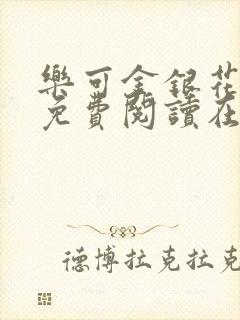 樂可金銀花
免費閱讀在
德博拉克拉克